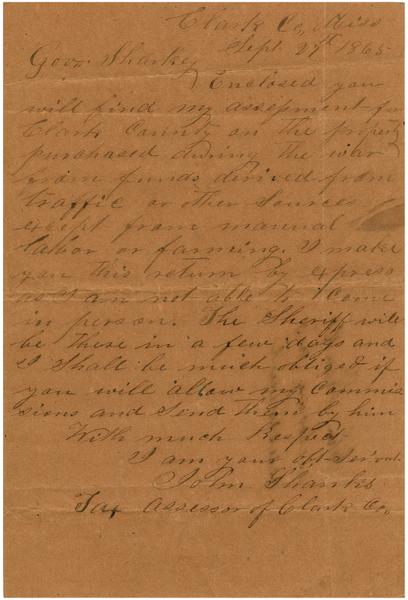 Clark Co, Miss
Sept 29th 1865
Govr. Sharkey
Enclosed you
will find my assessment for
Clark County on the property
purchased during the war
from funds derived from
traffic or other Sources
except from manual
labor or farming. I make
you this return by express
as I am not able to Come
in person. The Sheriff will
be there in a few days and
I Shall be much obliged if
you will allow my Commis
sions and Send them by him
With much Respect
I am your obt Servt.
John Shanks
Tax Assessor of Clark Co,